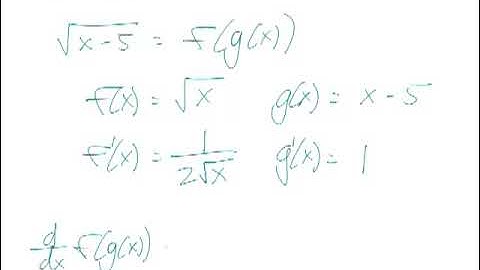 √(x-5) = f(g(x))
f(x) = √x   g(x) = x - 5
f'(x) = 1/(2√x)   g'(x) = 1
d/dx f(g(x))